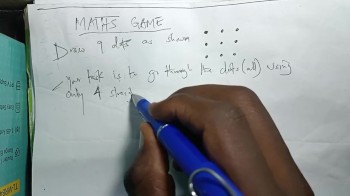 MATHS GAME
Draw 9 dots as shown
Your task is to go through the dots (all) using
only 4 strai